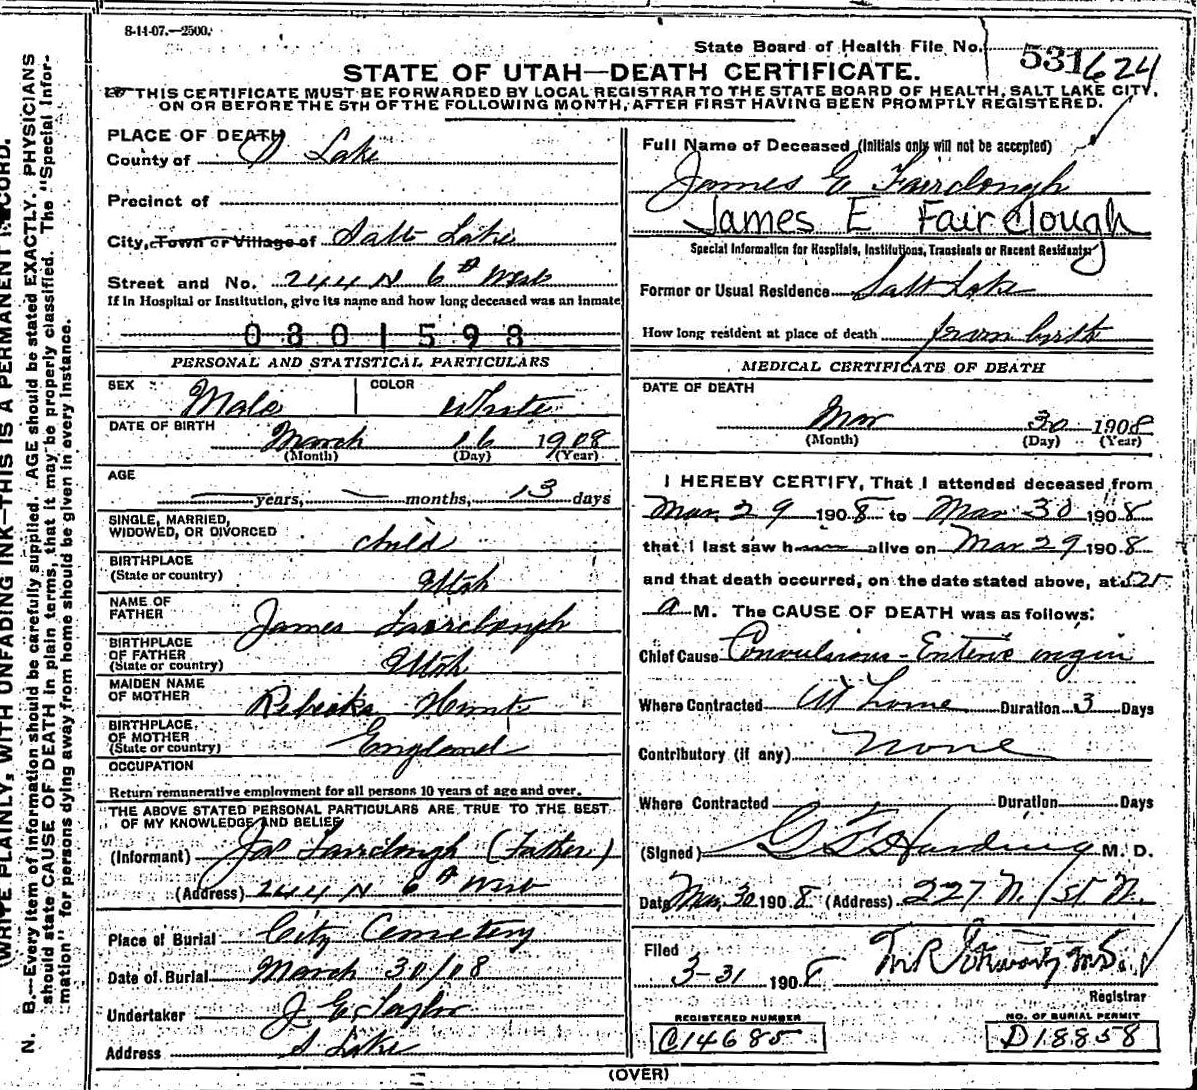 8-14-07.—2500.
State Board of Health File No. 531 624
STATE OF UTAH—DEATH CERTIFICATE.
THIS CERTIFICATE MUST BE FORWARDED BY LOCAL REGISTRAR TO THE STATE BOARD OF HEALTH, SALT LAKE CITY,
ON OR BEFORE THE 5TH OF THE FOLLOWING MONTH, AFTER FIRST HAVING BEEN PROMPTLY REGISTERED.
(WRITE PLAINLY, WITH UNFADING INK—THIS IS A PERMANENT RECORD.
N. B.—Every item of information should be carefully supplied. AGE should be stated EXACTLY. PHYSICIANS
should state CAUSE OF DEATH in plain terms, that it may be properly classified. The "Special Infor-
mation" for persons dying away from home should be given in every instance.
PLACE OF DEATH
County of S Lake
Precinct of
City, Town or Village of Salt Lake
Street and No. 244 N 6th West
If in Hospital or Institution, give its name and how long deceased was an inmate
0301598
PERSONAL AND STATISTICAL PARTICULARS
SEX Male COLOR White
DATE OF BIRTH
March 16 1908
(Month) (Day) (Year)
AGE
— years, — months, 13 days
SINGLE, MARRIED,
WIDOWED, OR DIVORCED child
BIRTHPLACE
(State or country) Utah
NAME OF
FATHER James Fairclough
BIRTHPLACE
OF FATHER
(State or country) Utah
MAIDEN NAME
OF MOTHER Rebecka Hunt
BIRTHPLACE
OF MOTHER
(State or country) England
OCCUPATION
Return remunerative employment for all persons 10 years of age and over.
THE ABOVE STATED PERSONAL PARTICULARS ARE TRUE TO THE BEST
OF MY KNOWLEDGE AND BELIEF
(Informant) Jas Fairclough (Father)
(Address) 244 N 6th West
Place of Burial City Cemetery
Date of Burial March 30/08
Undertaker J E Taylor
Address S Lake
Full Name of Deceased (Initials only will not be accepted)
James E Fairclough
James E Fairclough
Special Information for Hospitals, Institutions, Transients or Recent Residents:
Former or Usual Residence Salt Lake
How long resident at place of death from birth
MEDICAL CERTIFICATE OF DEATH
DATE OF DEATH
Mar 30 1908
(Month) (Day) (Year)
I HEREBY CERTIFY, That I attended deceased from
Mar 29 1908 to Mar 30 1908
that I last saw h alive on Mar 29 1908
and that death occurred, on the date stated above, at 525
a M. The CAUSE OF DEATH was as follows:
Chief Cause Convulsions - Enteric origin
Where Contracted At home Duration 3 Days
Contributory (if any) none
Where Contracted Duration Days
(Signed) G F Harding M. D.
Date Mar 30 1908 (Address) 227 N. 1st W.
Filed
3-31 1908
Registrar
REGISTERED NUMBER
C14685
NO. OF BURIAL PERMIT
D18858
(OVER)